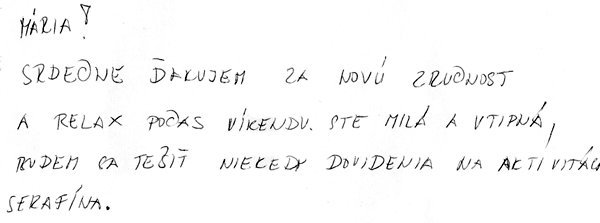 MÁRIA!
SRDEČNE ĎAKUJEM ZA NOVÚ ZRUČNOSŤ
A RELAX POČAS VÍKENDU. STE MILÁ A VTIPNÁ,
BUDEM SA TEŠIŤ NIEKEDY DOVIDENIA NA AKTIVITÁCH
SERAFÍNA.